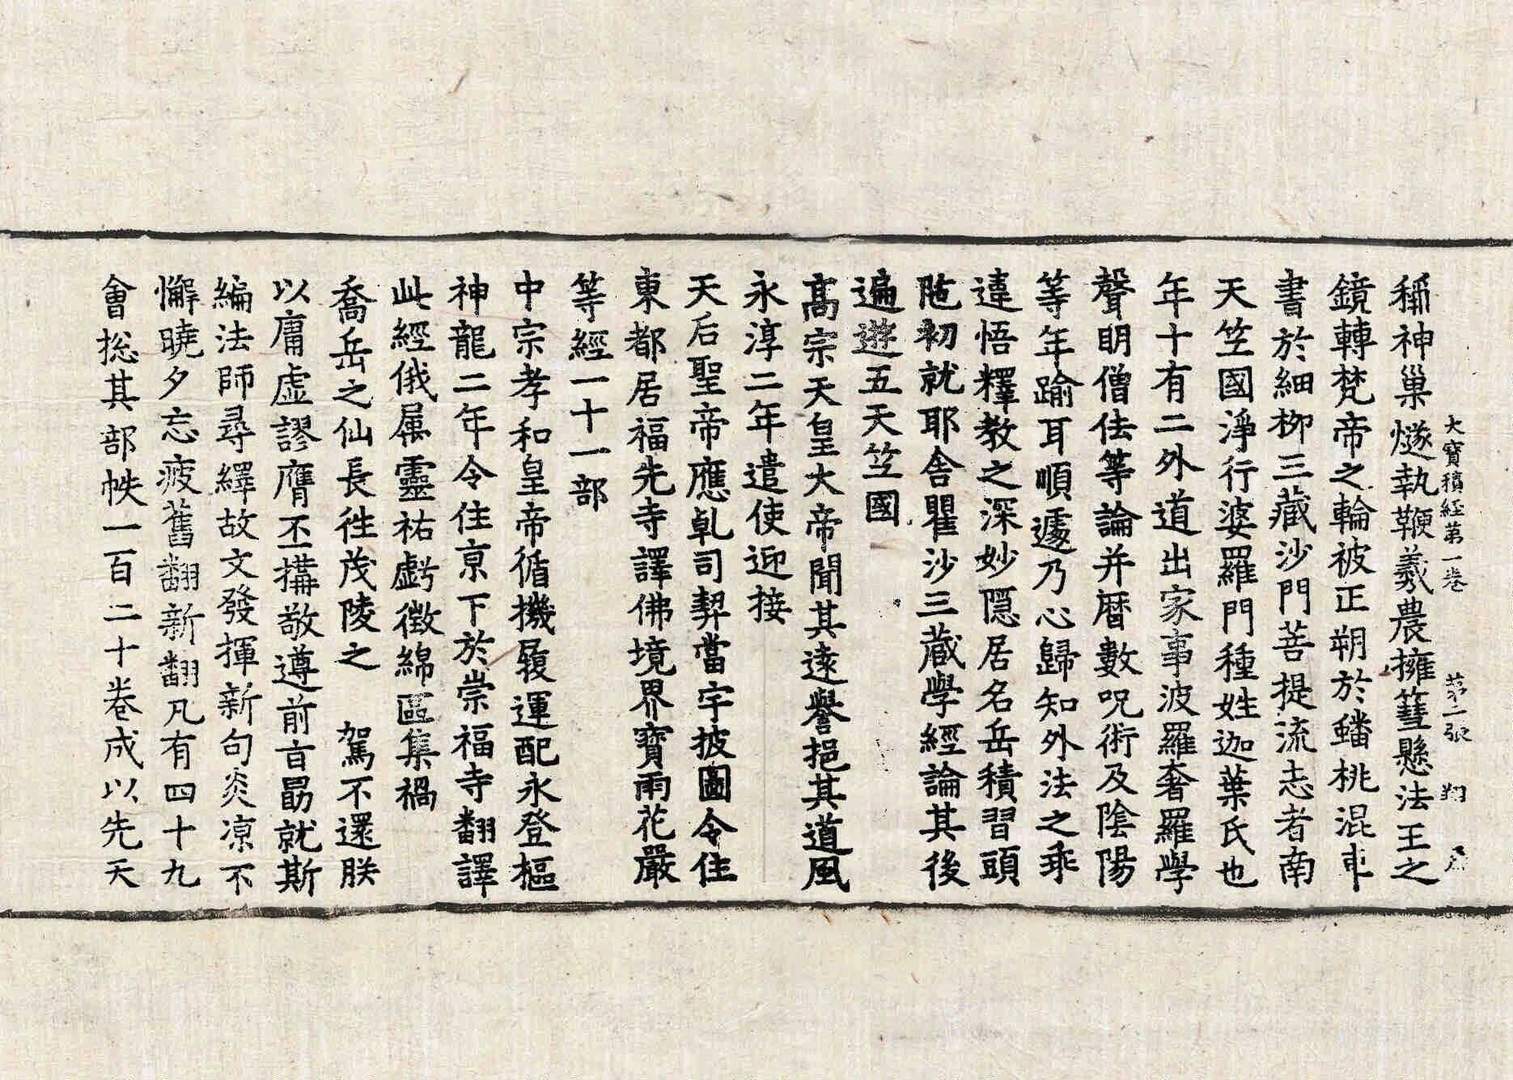 大寶積經第一卷 第二張 翔
稱神巢燧執鞭羲農擁篲懸法王之
鏡轉梵帝之輪被正朔於蟠桃混車
書於細柳三藏沙門菩提流志者南
天竺國淨行婆羅門種姓迦葉氏也
年十有二外道出家事波羅奢羅學
聲明僧佉等論并曆數呪術及陰陽
等年踰耳順遽乃心歸知外法之乖
違悟釋教之深妙隱居名岳積習頭
陁初就耶舍瞿沙三藏學經論其後
遍遊五天竺國
高宗天皇大帝聞其遠譽挹其道風
永淳二年遣使迎接
天后聖帝應乹司契當宇披圖令住
東都居福先寺譯佛境界寶雨花嚴
等經一十一部
中宗孝和皇帝循機履運配永登樞
神龍二年令住京下於崇福寺翻譯
此經俄属靈祐虧徵綿區集禍
喬岳之仙長徃茂陵之 駕不還朕
以庸虛謬膺丕搆敬遵前旨勗就斯
編法師尋繹故文發揮新句炎凉不
懈曉夕忘疲舊翻新翻凡有四十九
會捴其部帙一百二十卷成以先天